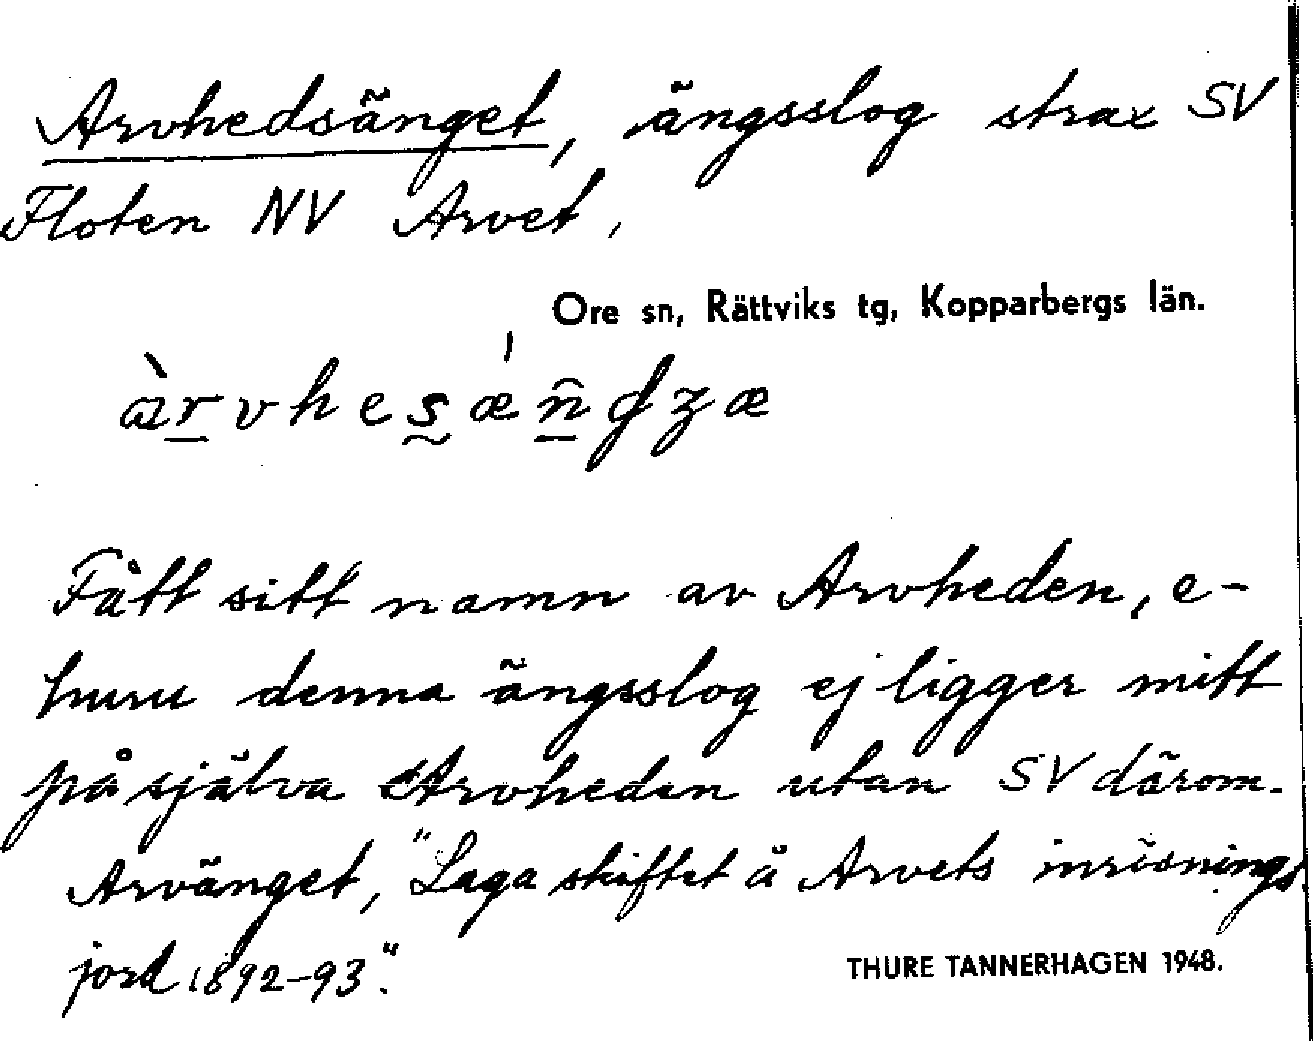 Arvhedsänget, ängsslog strax SV
Floten NV Arvet,
Ore sn, Rättviks tg, Kopparbergs län.
àrvhesǽn̂ʤzæ
Fått sitt namn av Arvheden, e-
huru denna ängsslog ej ligger mitt
på själva Arvheden utan SV därom.
Arvänget, "Laga skiftet å Arvets inrösnings
jord 1892-93."
THURE TANNERHAGEN 1948.